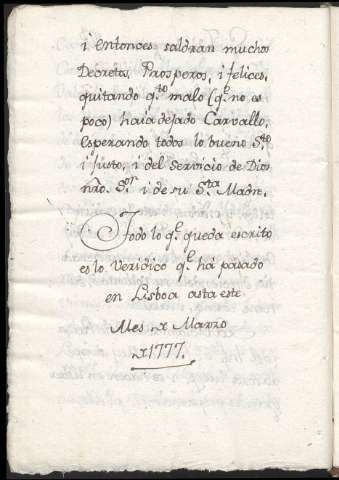 i entonces saldran muchos
Decretos, Prosperos, i felices,
quitando q.to malo (q.e no es
poco) haia dejado Carvallo,
esperando todos lo bueno S.to
i justo, i del servicio de Dios
ñro. S.or i de su S.ta Madre.
Todo lo q.e queda escrito
es lo Veridico q.e há pasado
en Lisboa asta este
Mes de Marzo
de 1777.